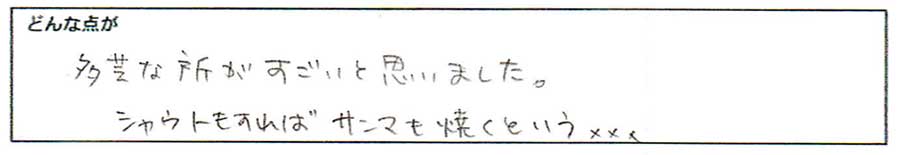 どんな点が
多芸な所がすごいと思いました。
シャウトもすればサンマも焼くという×××